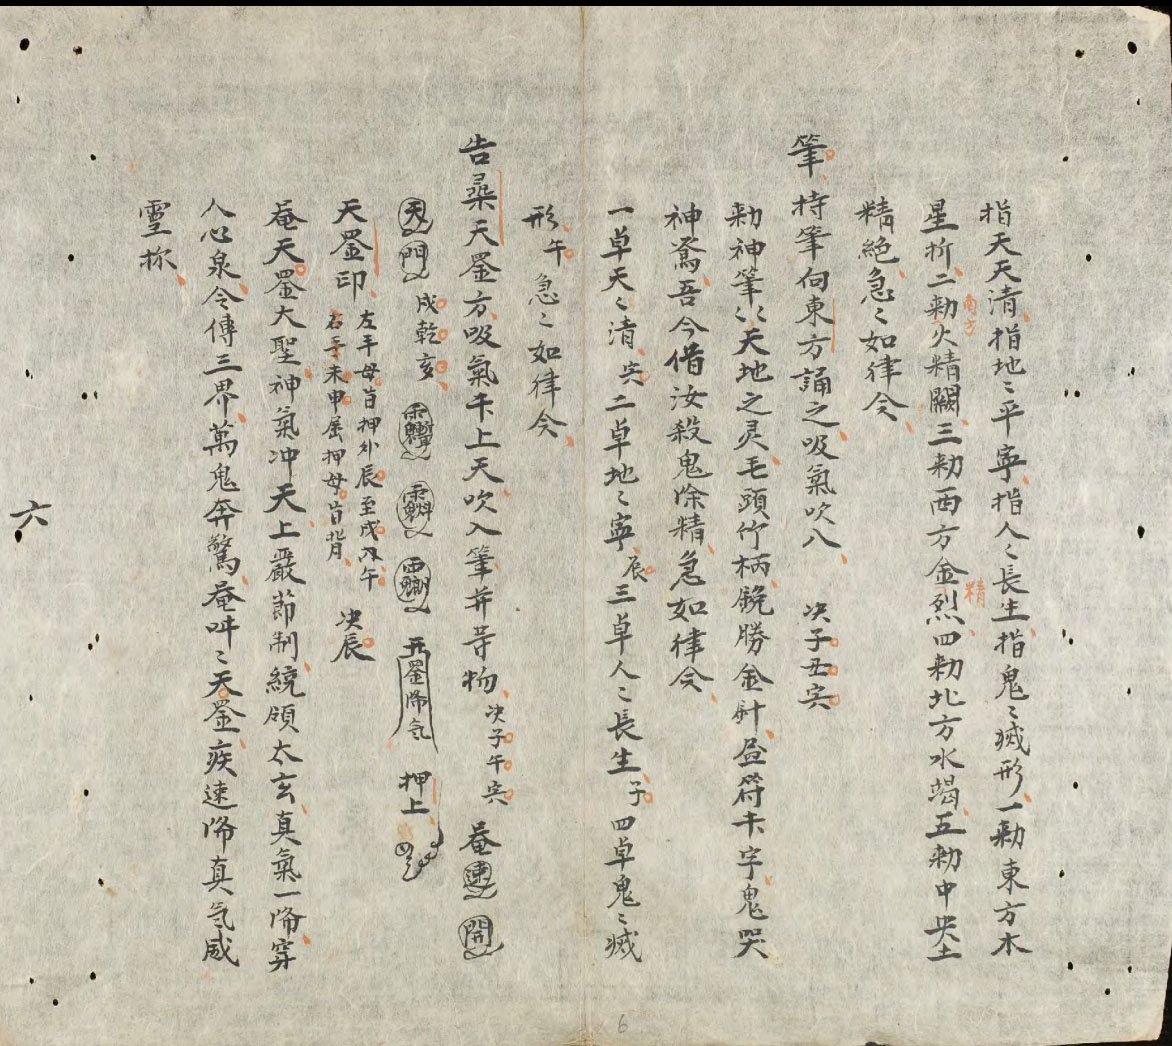 指天天清指地〻平寧指人〻長生指鬼〻滅形一勅東方木
星折二勅南方火精闕三勅西方金精烈四勅北方水竭五勅中央土
精絶急〻如律令
筆 持筆向東方誦之吸氣吹入 决子丑寅
勅神筆〻天地之灵毛頭竹柄銳勝金針 符 字鬼哭
神驚吾今借汝殺鬼除精急如律令
一卓天〻清寅二卓地〻寧辰三卓人〻長生子四卓鬼〻滅
形午 急〻如律令
告 天罡方吸氣 上天吹入筆并等物决子午寅 菴 速 開
天 門 戌乾亥 罡降气 押上
天罡印 左手母 押外辰至戌 午
右手未申屈押母 背 决辰
菴天罡大聖神氣冲天上嚴節制統領太玄真氣一降穿
人心泉令傳三界萬鬼奔驚菴吽〻天罡疾速降真气威
靈
六
6